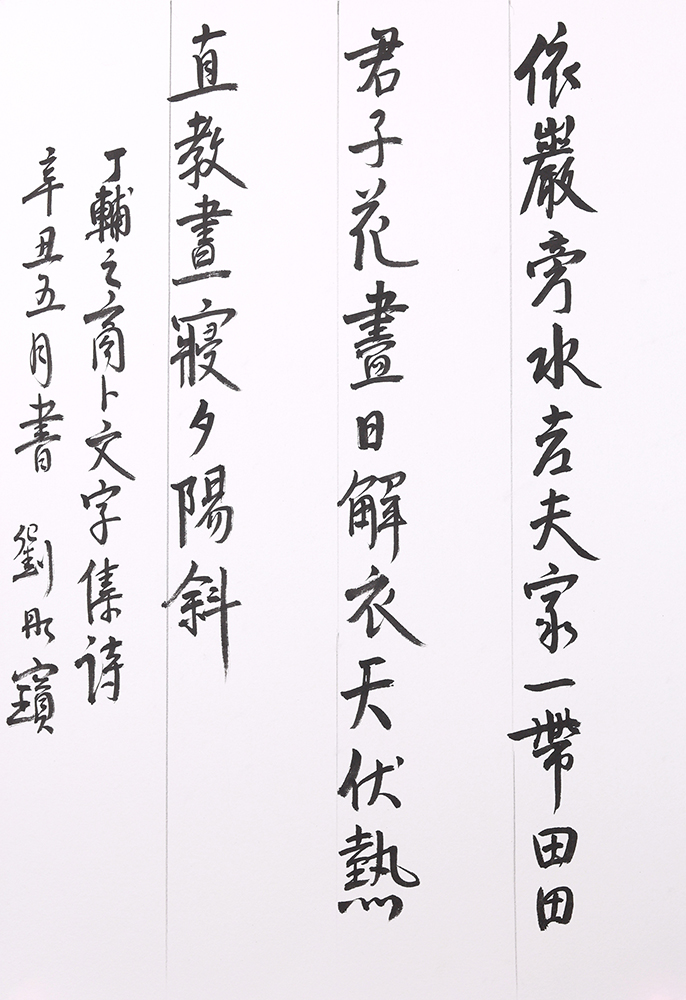 依巖旁水吉夫家一帶田田
君子花晝日解衣天伏熱
直教晝寢夕陽斜
丁輔之商卜文字集詩
辛丑五月書 劉彤寶